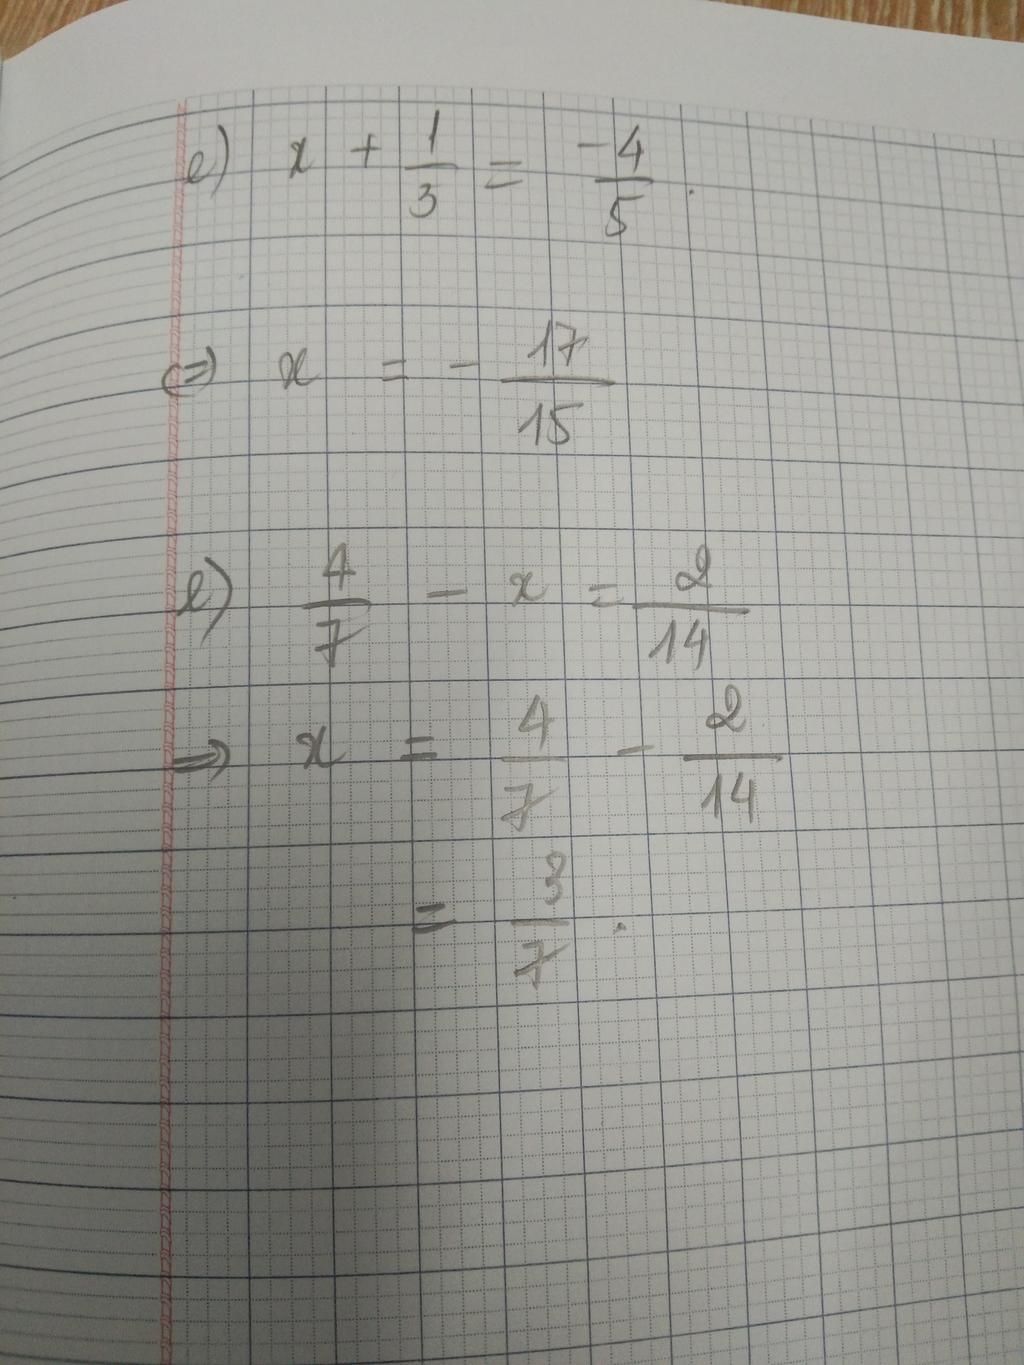 e) x + 1/3 = -4/5.
<=> x = - 17/15
e) 4/7 - x = 2/14
=> x = 4/7 - 2/14
= 3/7.